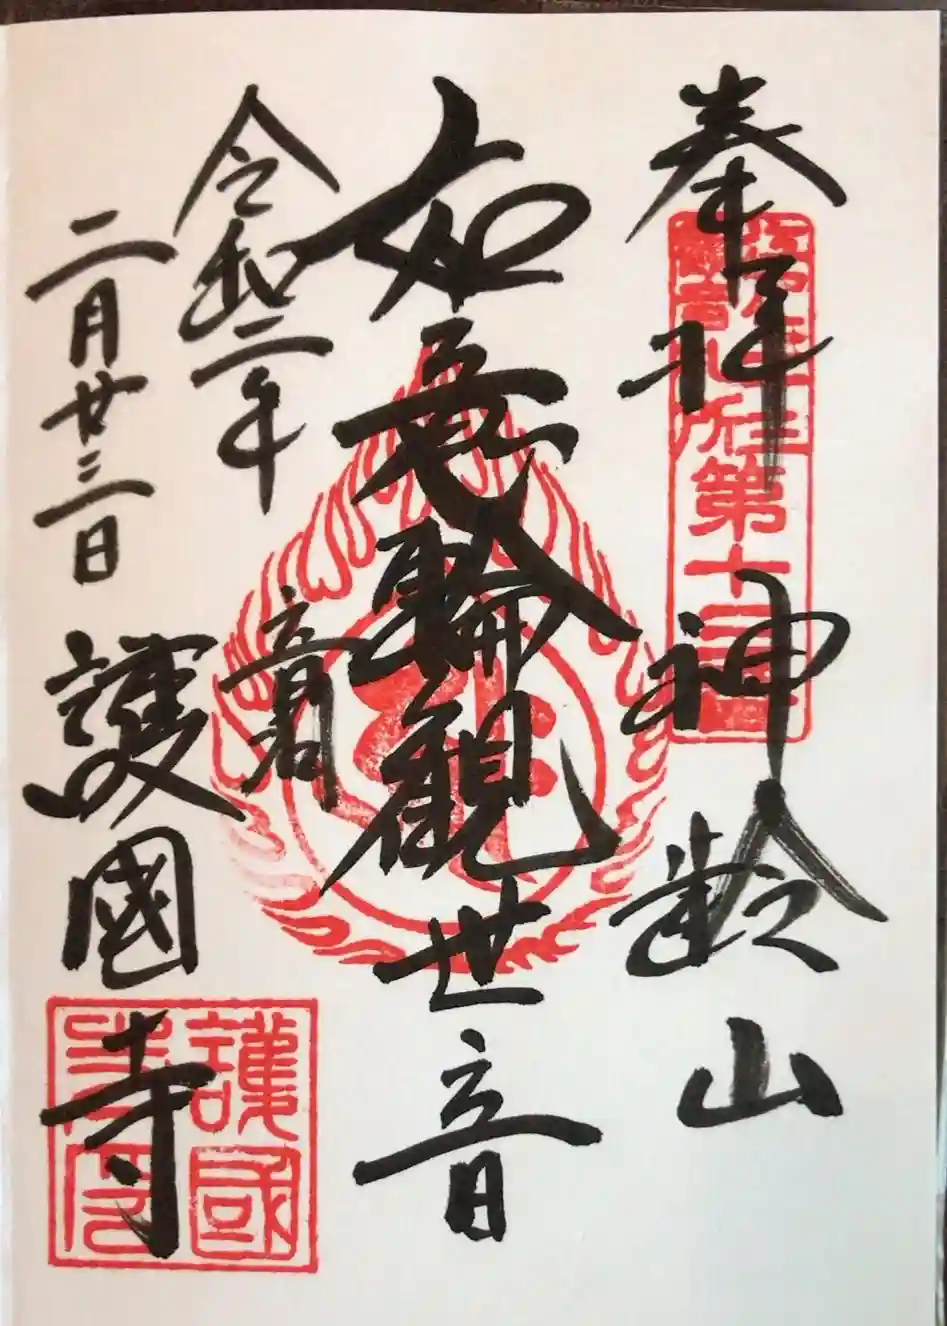 奉拝
神齢山
如意輪観世音
令和二年
二月廿三日
護國寺
第十三
護國